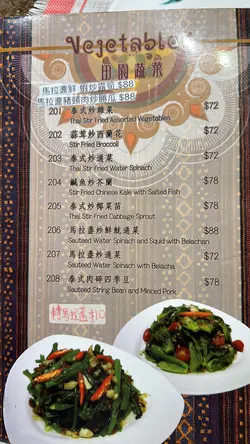 Vegetables
田園蔬菜
馬拉盞鮮蝦炒露筍 $88
馬拉盞豬頸肉炒勝瓜 $88
201 泰式炒雜菜 $72
Thai Stir Fried Assorted Vegetables
202 蒜茸炒西蘭花 $72
Stir Fried Broccoil
203 泰式炒通菜 $72
Thai Stir Fried Water Spinach
204 鹹魚炒芥蘭 $78
Stir Fried Chinese Kale with Salted Fish
205 泰式炒椰菜苗 $78
Thai Stir Fried Cabbage Sprout
206 馬拉盞炒鮮魷通菜 $88
Sauteed Water Spinach and Squid with Belachan
207 馬拉盞炒通菜 $78
Sauteed Water Spinach with Belacha
208 泰式肉碎四季豆 $78
Sauteed String Bean and Minced Pork
轉馬拉盞+10